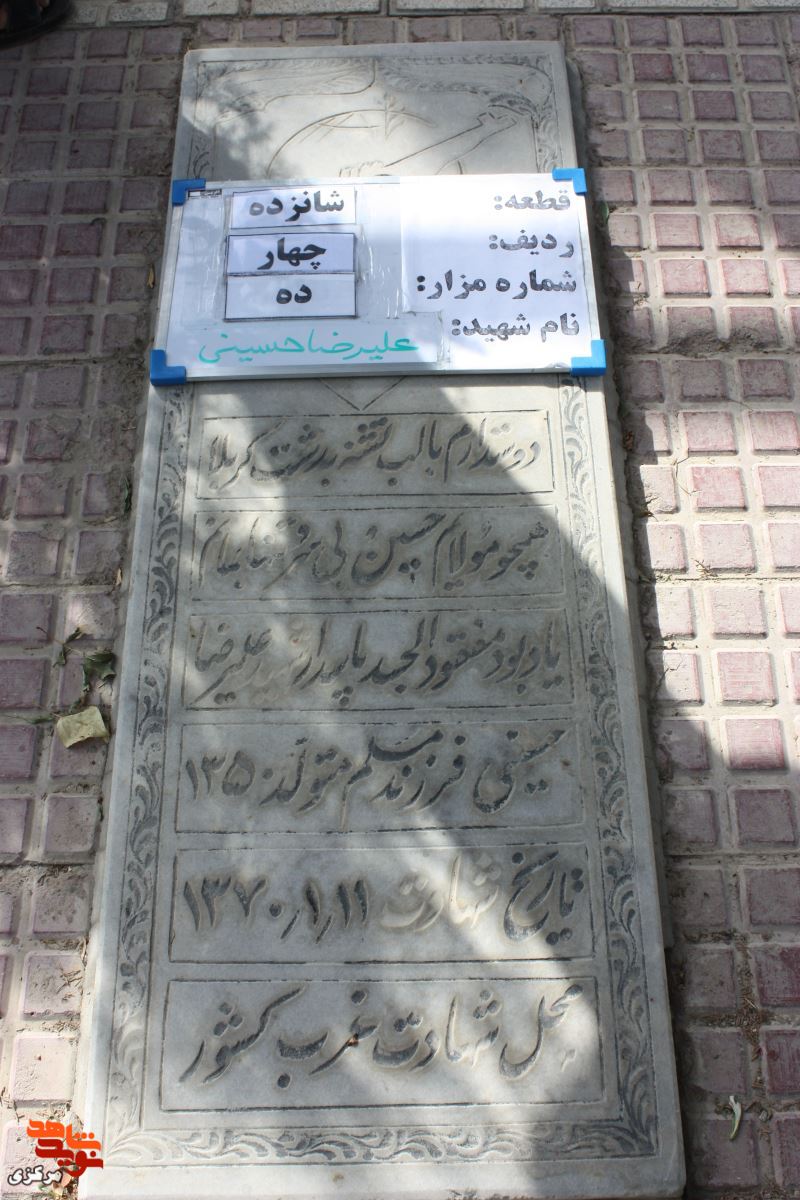 قطعه: شانزده
ردیف: چهار
شماره مزار: ده
نام شهید: علیرضا حسینی
دوستدارم با لب تشنه بدشت کربلا
همچو مولایم حسین بی سر و تنها بمانم
یادبود مفقود الجسد پاسدار سید علیرضا
حسینی فرزند مسلم متولد ۱۳۵۰
تاریخ شهادت ۱۳۷۰/۱/۱۱
محل شهادت غرب کشور
نوید شاهد
مرکزی